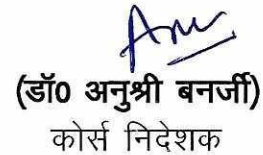 (डॉ0 अनुश्री बनर्जी)
कोर्स निदेशक